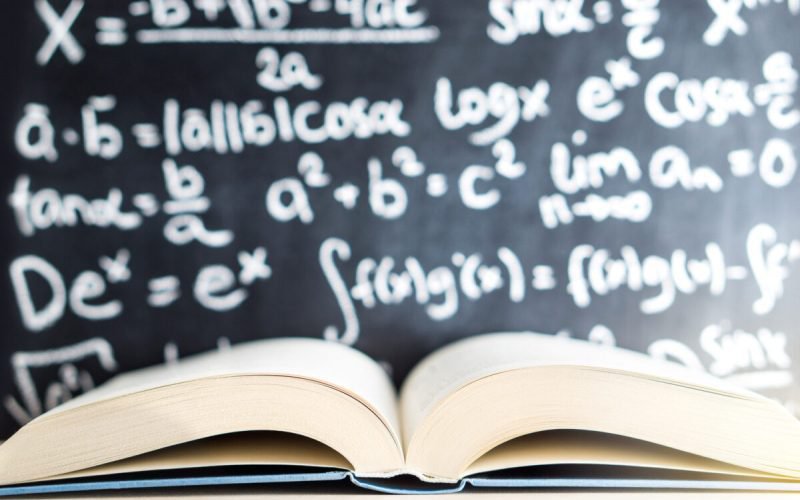 x = -b+√b²-4ac / 2a sinα = / c
ā·b̄ = |ā||b̄|cosα logx eˣ cosα = a/c
tanα = b/a a² + b² = c² lim n→∞ aₙ = 0
Deˣ = eˣ ∫f(x)g'(x) = f(x)g(x) - ∫f'
sinx